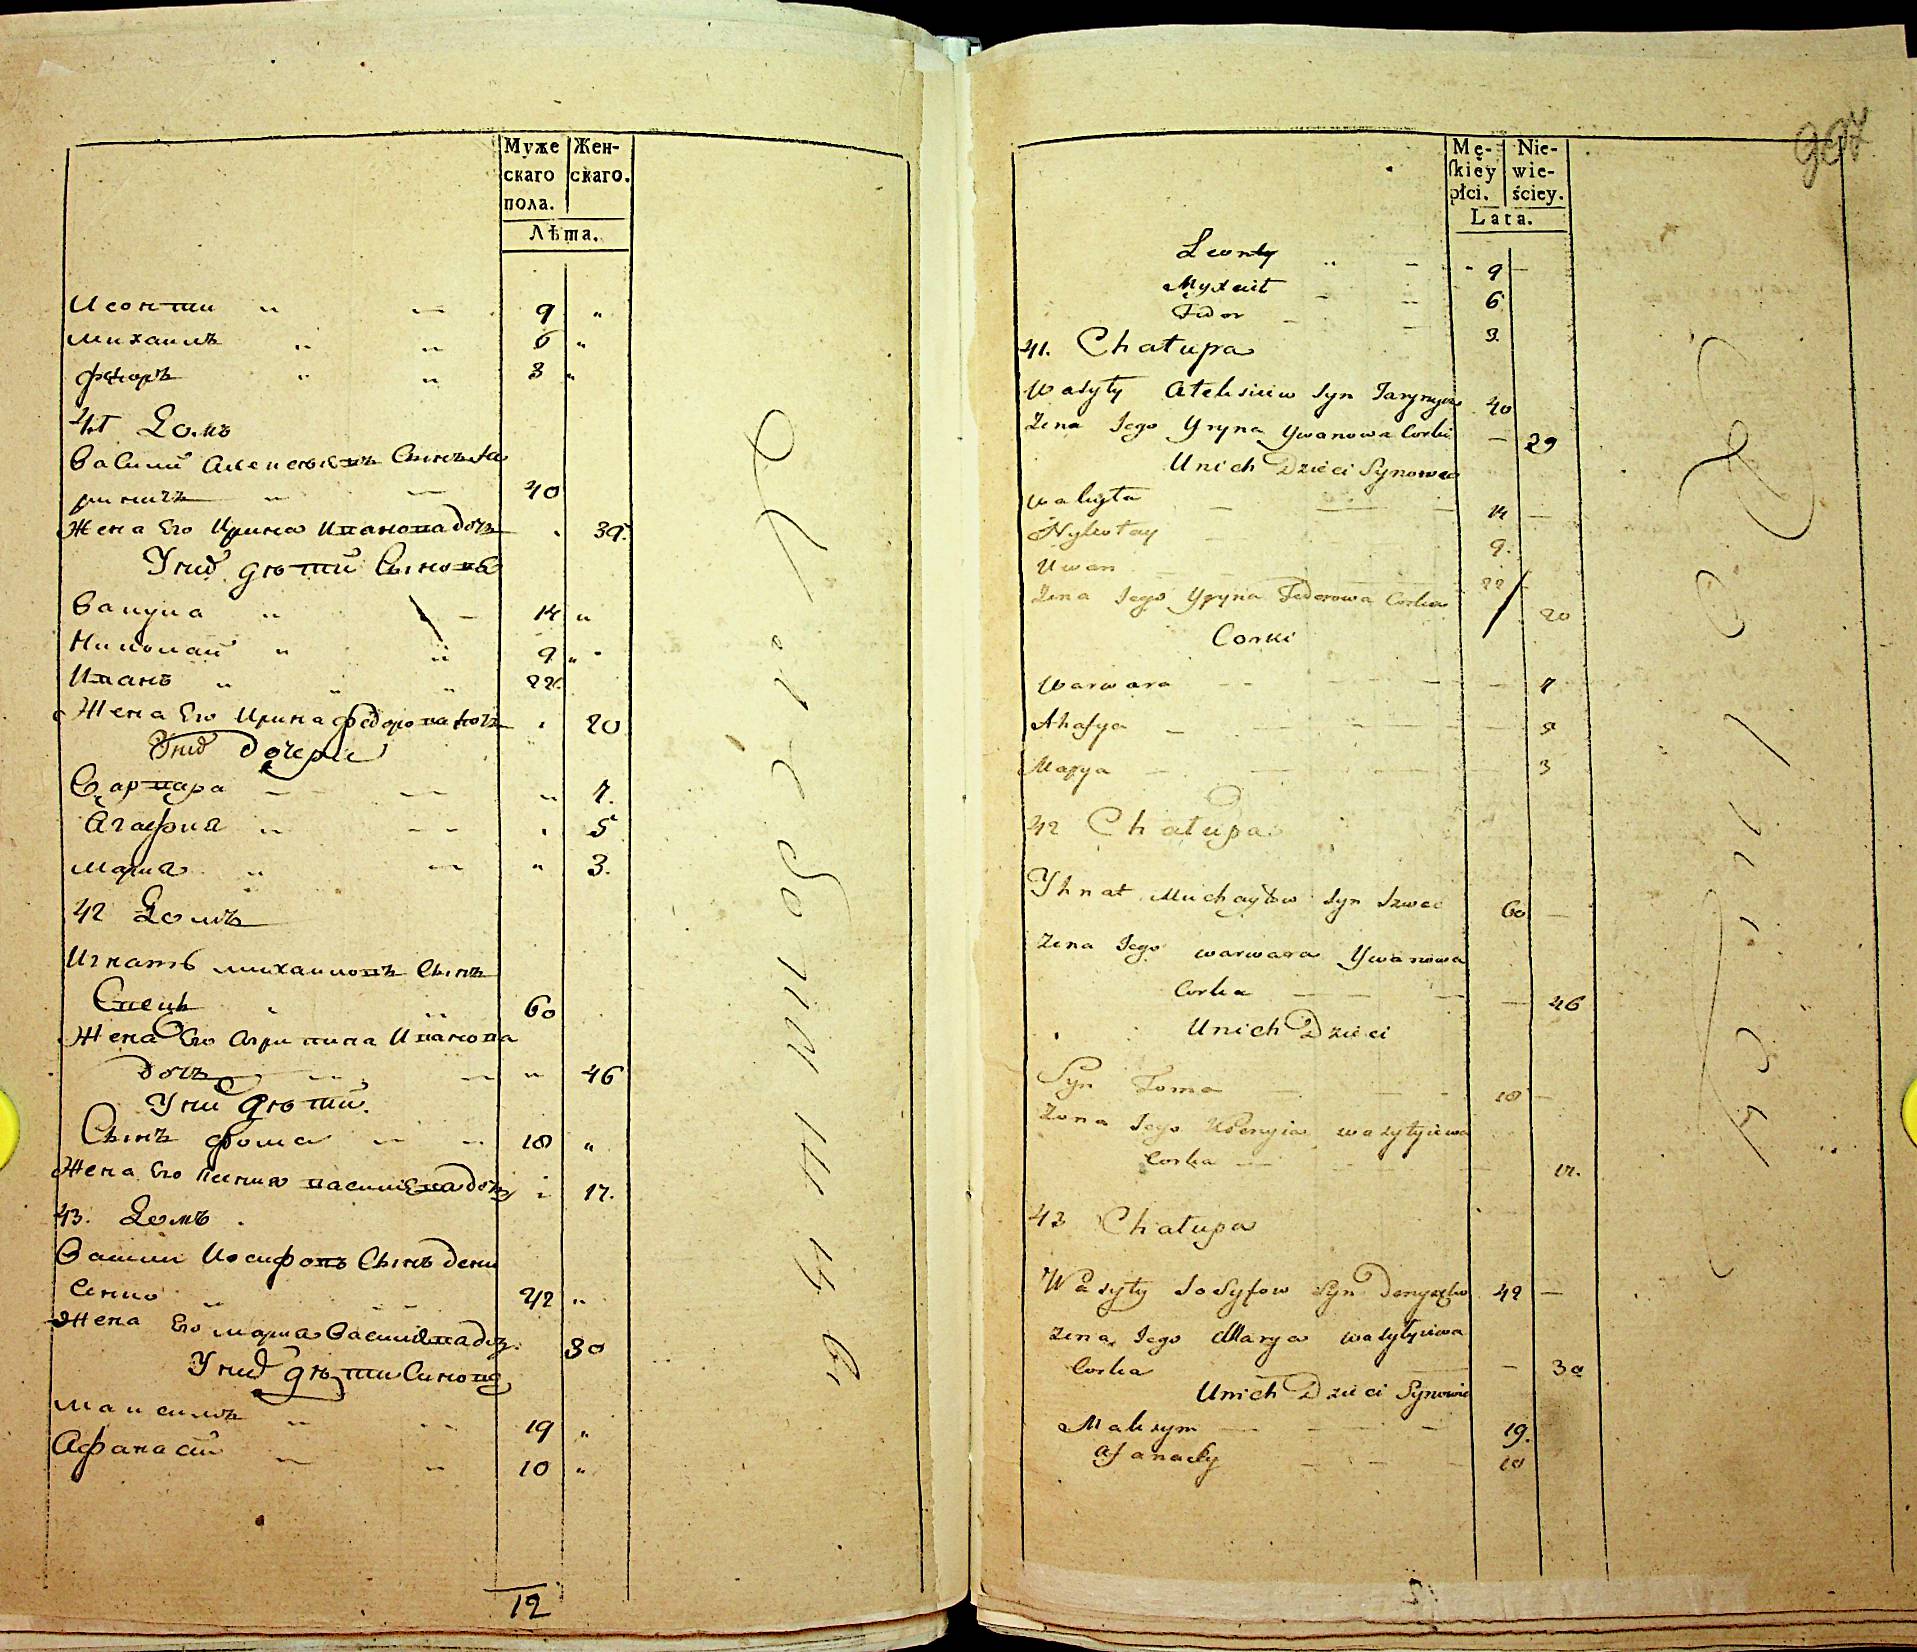 Муже
скаго
пола.
Жен-
скаго.
Лѣта.
Леонтий 9 "
Михаилъ 6 "
Федоръ 3 "
41 Домъ
Василий Алексѣевъ Сынъ Га
риничъ 40
Жена Его Ирина Иванова дочь 39.
У них дѣти Сынова
Вакула 14 "
Николай 9 "
Иванъ 22.
Жена Его Ирина Федорова дочь 20
У них дочери
Варвара 7.
Агафия 5
Мария 3.
42 Домъ
Игнатъ Михаиловъ Сынъ
Швецъ 60
Жена Его Иванова
дочь 46
У них дѣти.
Сынъ Фома 18 "
Жена Его Васильева дочь 17.
43. Домъ.
Васили Иосифовъ Сынъ Дени
сенко 42 "
Жена Его Мария Васильева дочь. 30
У них дѣти Синове
Максимъ 19 "
Афанасий 10 "
12
997
Mę-
skiéy
płci.
Nie-
wie-
ściey.
Lata.
Leonty 9
Myxail 6
Fidor 3.
41. Chałupa
Wasyly Alexiiew Syn 40
Zena Jego Yryna Ywanowa Corka 29
Unich Dzieci Synowie
Wakuła 14
Nykołay 9.
Uwan 22
Zena Jego Yryna Federowa Corka 20
Corki
Warwara 7
Ahafya 5
Marya 3
42 Chałupa
Yhnat Michayłow Syn Szwec 60
Zena Jego Warwara Ywanowa
Corka 46
Unich Dzieci
Syn Foma 18
Zona Jego Wasylyiewa
Corka 17.
43 Chałupa
Wasyly Josyfow Syn Denysenko 42
Zena Jego Marya Wasylyiewa
Corka 30
Unich Dzieci Synowie
Maksym 19.
Afanasiy 10